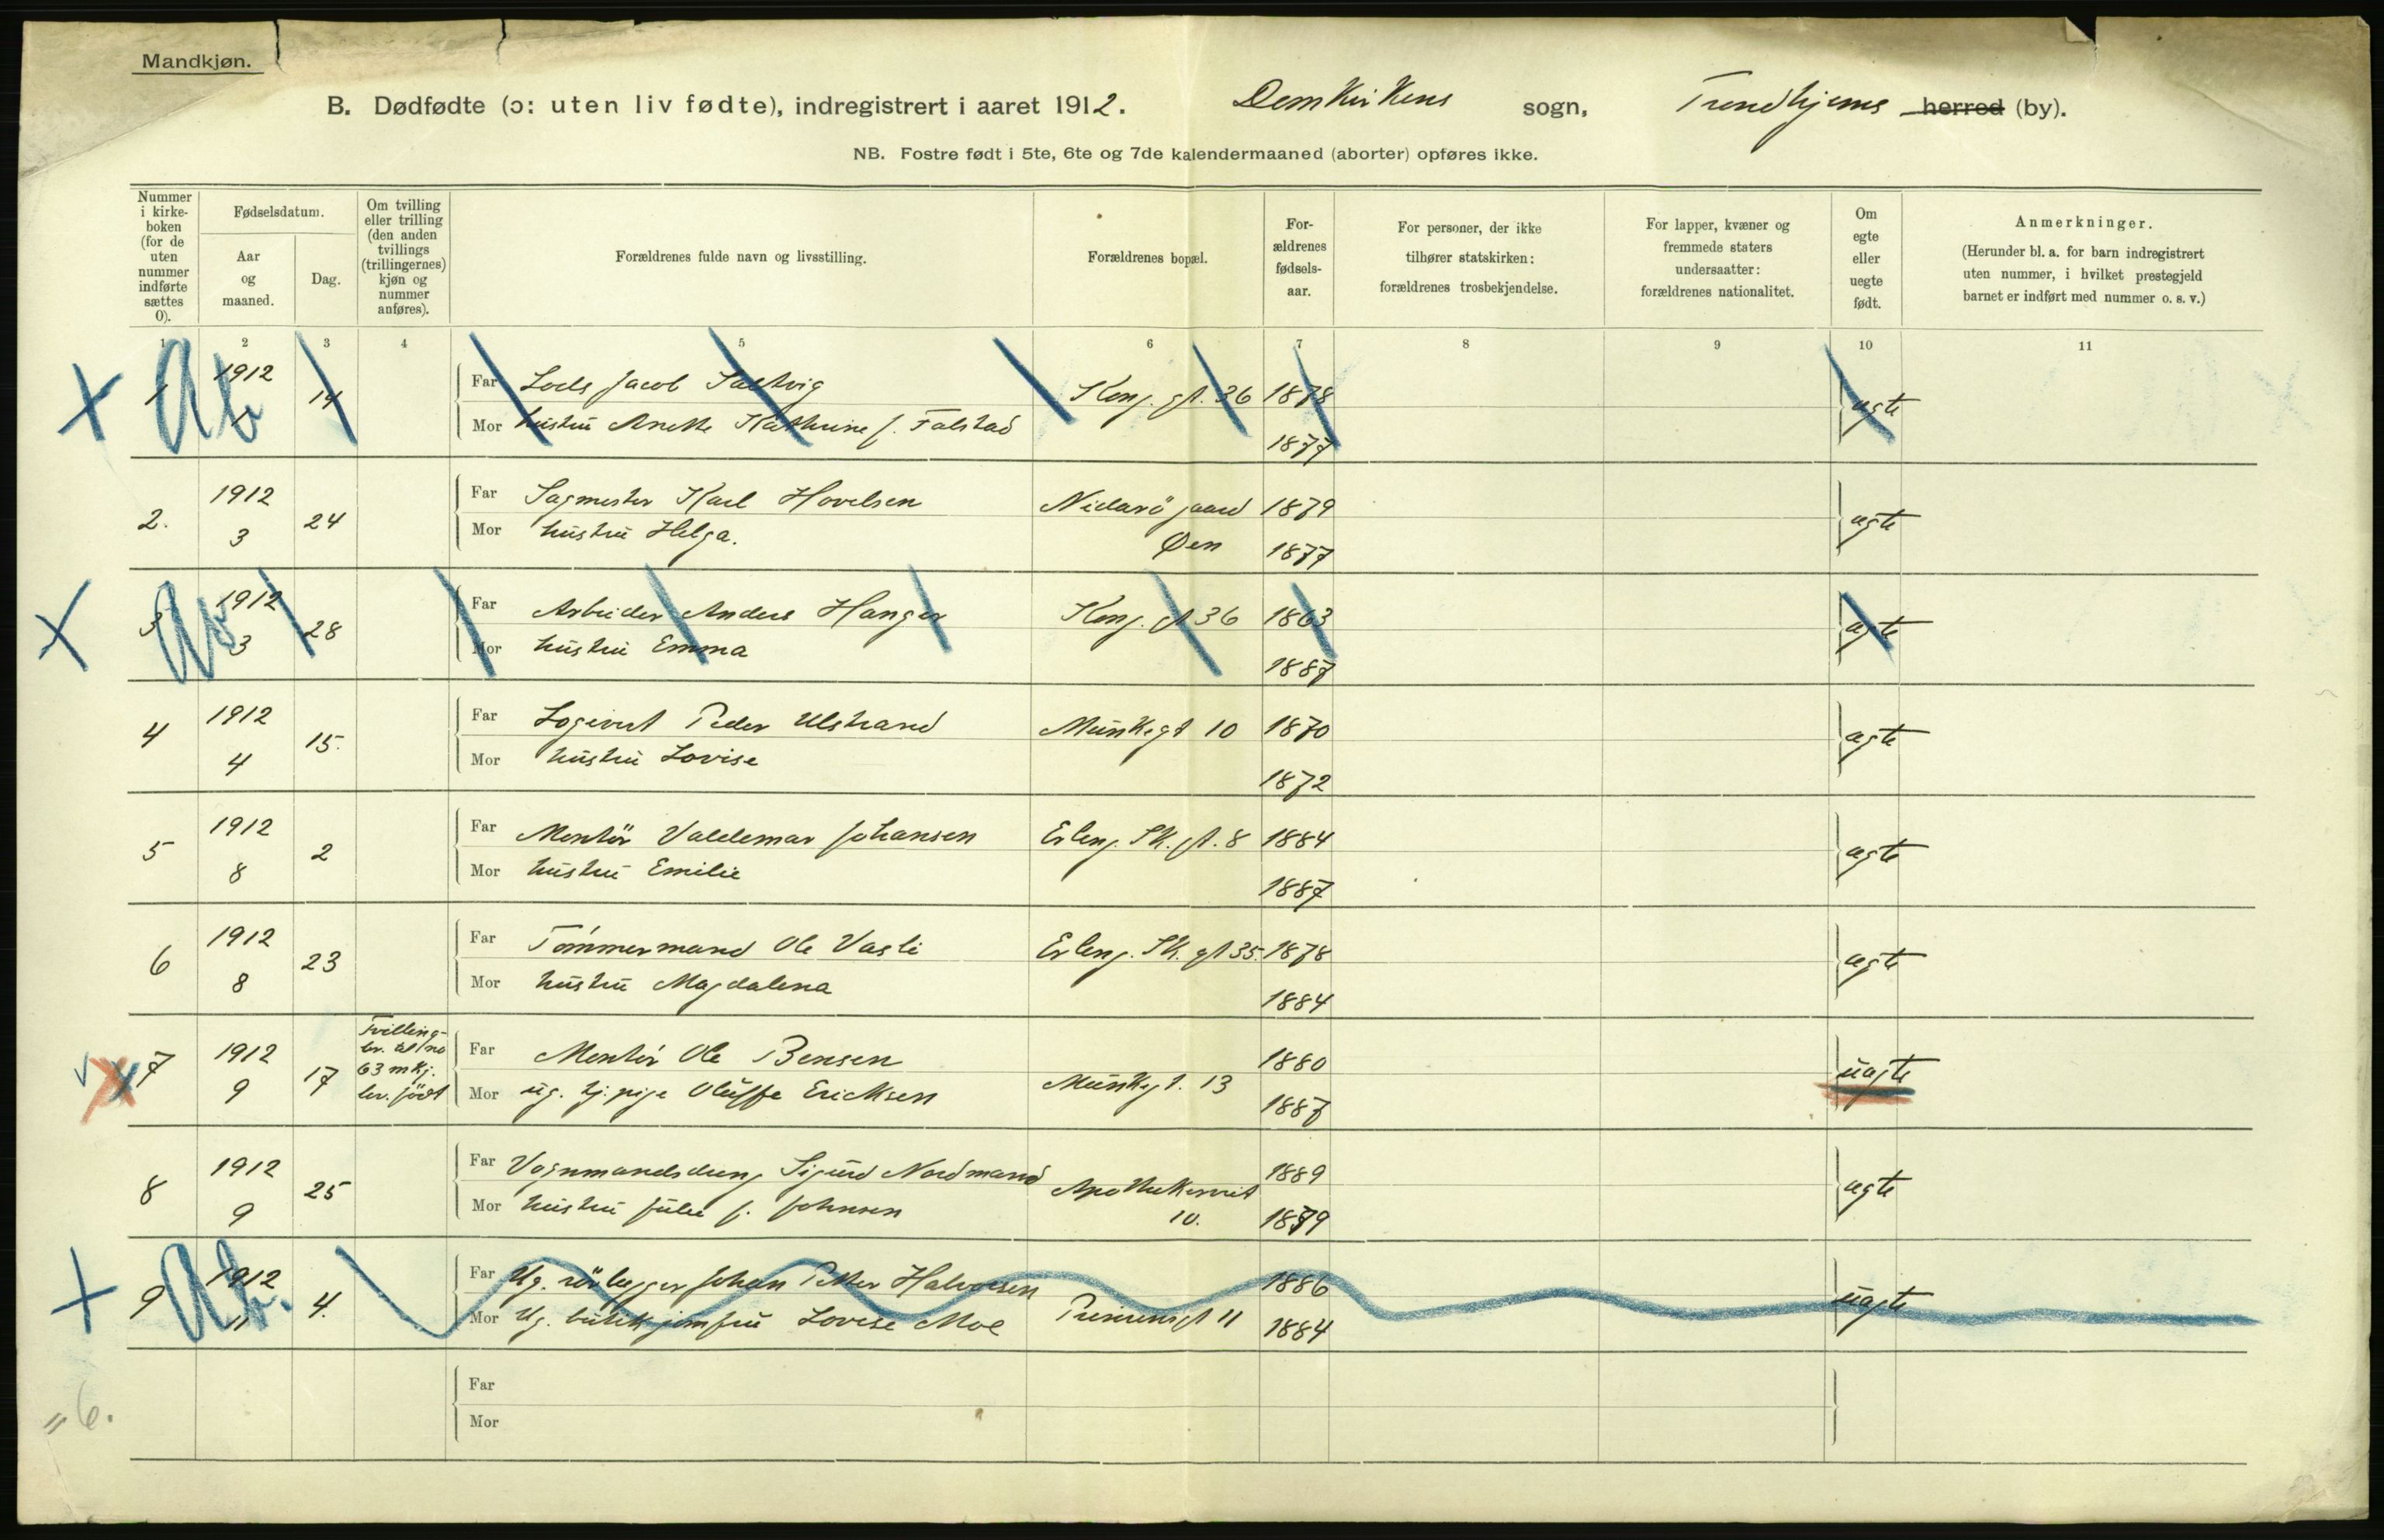 Mandkjøn.
B. Dødfødte (ɔ: uten liv fødte), indregistrert i aaret 1912. Domkirkens sogn, Trondhjems herred (by).
NB. Fostre født i 5te, 6te og 7de kalendermaaned (aborter) opføres ikke.
Nummer i kirke- boken (for de uten nummer indførte sættes 0).
Fødselsdatum.
Aar og maaned.
Dag.
Om tvilling eller trilling (den anden tvillings (trillingernes) kjøn og nummer anføres).
Forældrenes fulde navn og livsstilling.
Forældrenes bopæl.
For- ældrenes fødsels- aar.
For personer, der ikke tilhører statskirken: forældrenes trosbekjendelse.
For lapper, kvæner og fremmede staters undersaatter: forældrenes nationalitet.
Om egte eller uegte født.
Anmerkninger.
(Herunder bl. a. for barn indregistrert uten nummer, i hvilket prestegjeld barnet er indført med nummer o. s. v.)
1 2 3 4 5 6 7 8 9 10 11
+ 1 Ab 1912 14 Far Lods Jacob Saltvig Kong. gt. 36 1878 ægte
Mor hustru Anette Kathrine f. Falstad 1877
2. 1912 3 24 Far Sagmester Karl Hovelsen Nidarö gaard 1879 ægte
Mor hustru Helga. Øen 1877
+ 3 Ab 1912 3 28 Far Arbeider Anders Hanger Kong. gt 36 1863 ægte
Mor hustru Emma 1887
4 1912 4 15. Far Logivert Peder Ulstrand Munkegt 10 1870 ægte
Mor hustru Lovise 1872
5 1912 8 2 Far Montör Valdemar Johansen Erling. Sk. gt. 8 1884 ægte
Mor hustru Emilie 1887
6 1912 8 23 Far Tømmermand Ole Vasli Erling. Sk. gt 35. 1878 ægte
Mor hustru Magdalena 1884
7 1912 9 17 Tvilling- br. til no 63 mkj. lev. født Far Montör Ole Bensen 1880 uægte
Mor ug. tj.pige Oluffe Ericksen Munkegt. 13 1887
8 1912 9 25 Far Vognmandsdreng Sigurd Nordmand 1889 ægte
Mor hustru Julie f. Johnsen Apothekerveit 10. 1889
+ 9 Ab. 1912 11 4. Far Ug. rörlægger Johan Petter Halvorsen 1886 uægte
Mor Ug. butikjomfru Lovise Moe Prinsensgt 11 1884
Far
Mor
" 6.